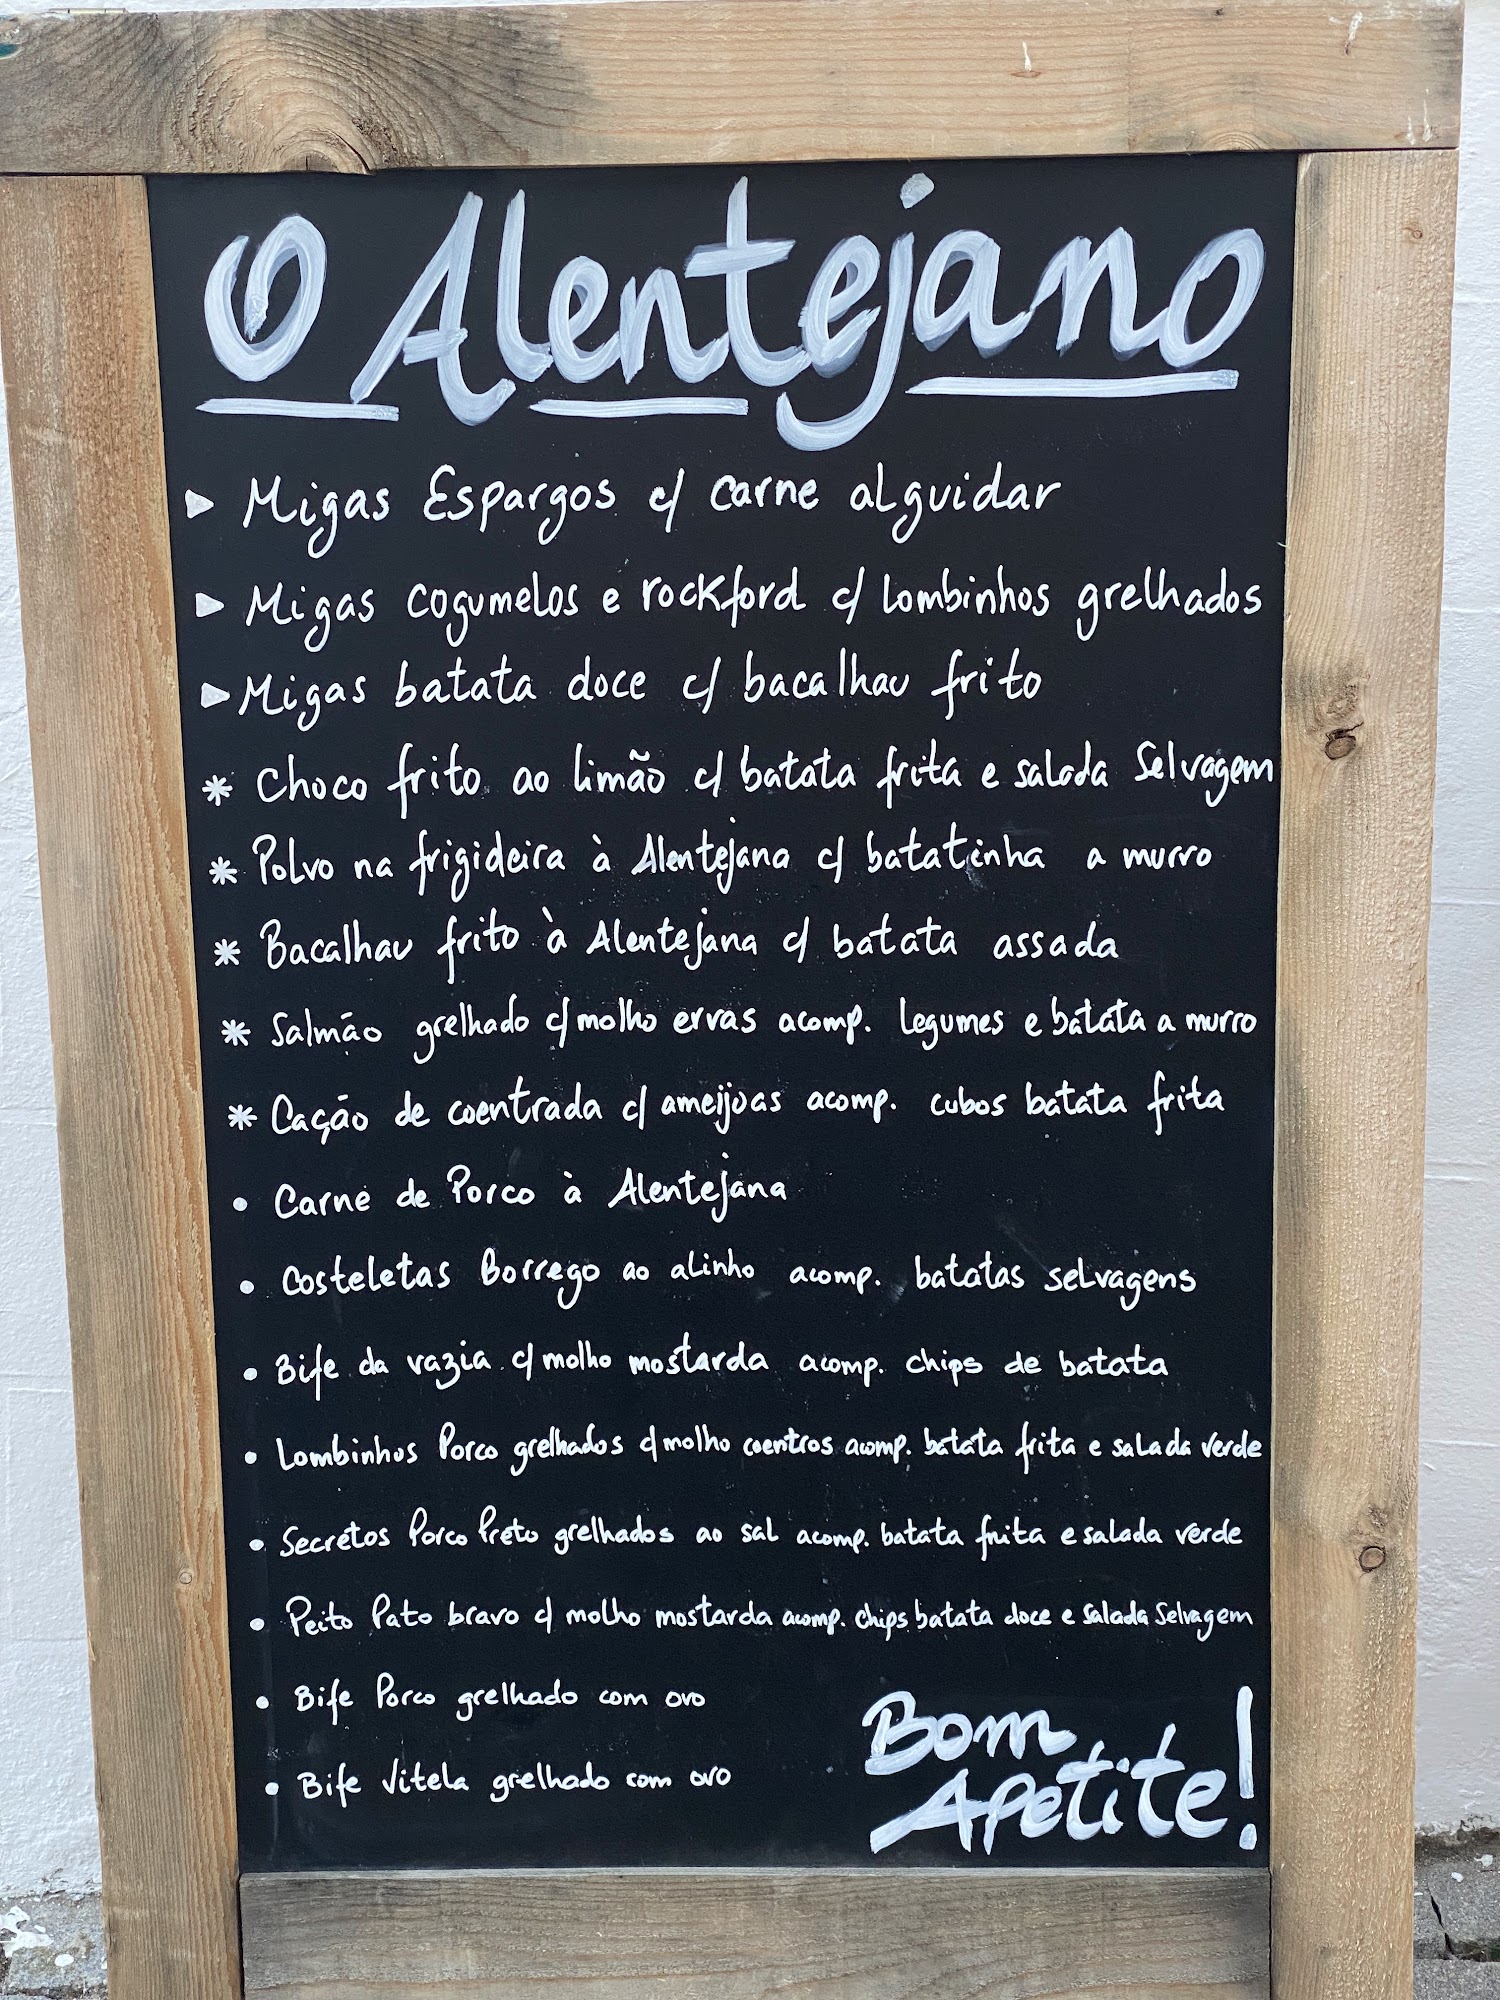 O Alentejano
▸ Migas Espargos c/ carne alguidar
▸ Migas cogumelos e rockford c/ lombinhos grelhados
▸ Migas batata doce c/ bacalhau frito
* Choco frito ao limão c/ batata frita e salada Selvagem
* Polvo na frigideira à Alentejana c/ batatinha a murro
* Bacalhau frito à Alentejana c/ batata assada
* Salmão grelhado c/ molho ervas acomp. legumes e batata a murro
* Cação de coentrada c/ ameijoas acomp. cubos batata frita
• Carne de Porco à Alentejana
• Costeletas Borrego ao alinho acomp. batatas selvagens
• Bife da vazia c/ molho mostarda acomp. chips de batata
• Lombinhos Porco grelhados c/ molho coentros acomp. batata frita e salada verde
• Secretos Porco Preto grelhados ao sal acomp. batata frita e salada verde
• Peito Pato bravo c/ molho mostarda acomp. chips batata doce e salada Selvagem
• Bife Porco grelhado com ovo
• Bife Vitela grelhado com ovo
Bom
Apetite!